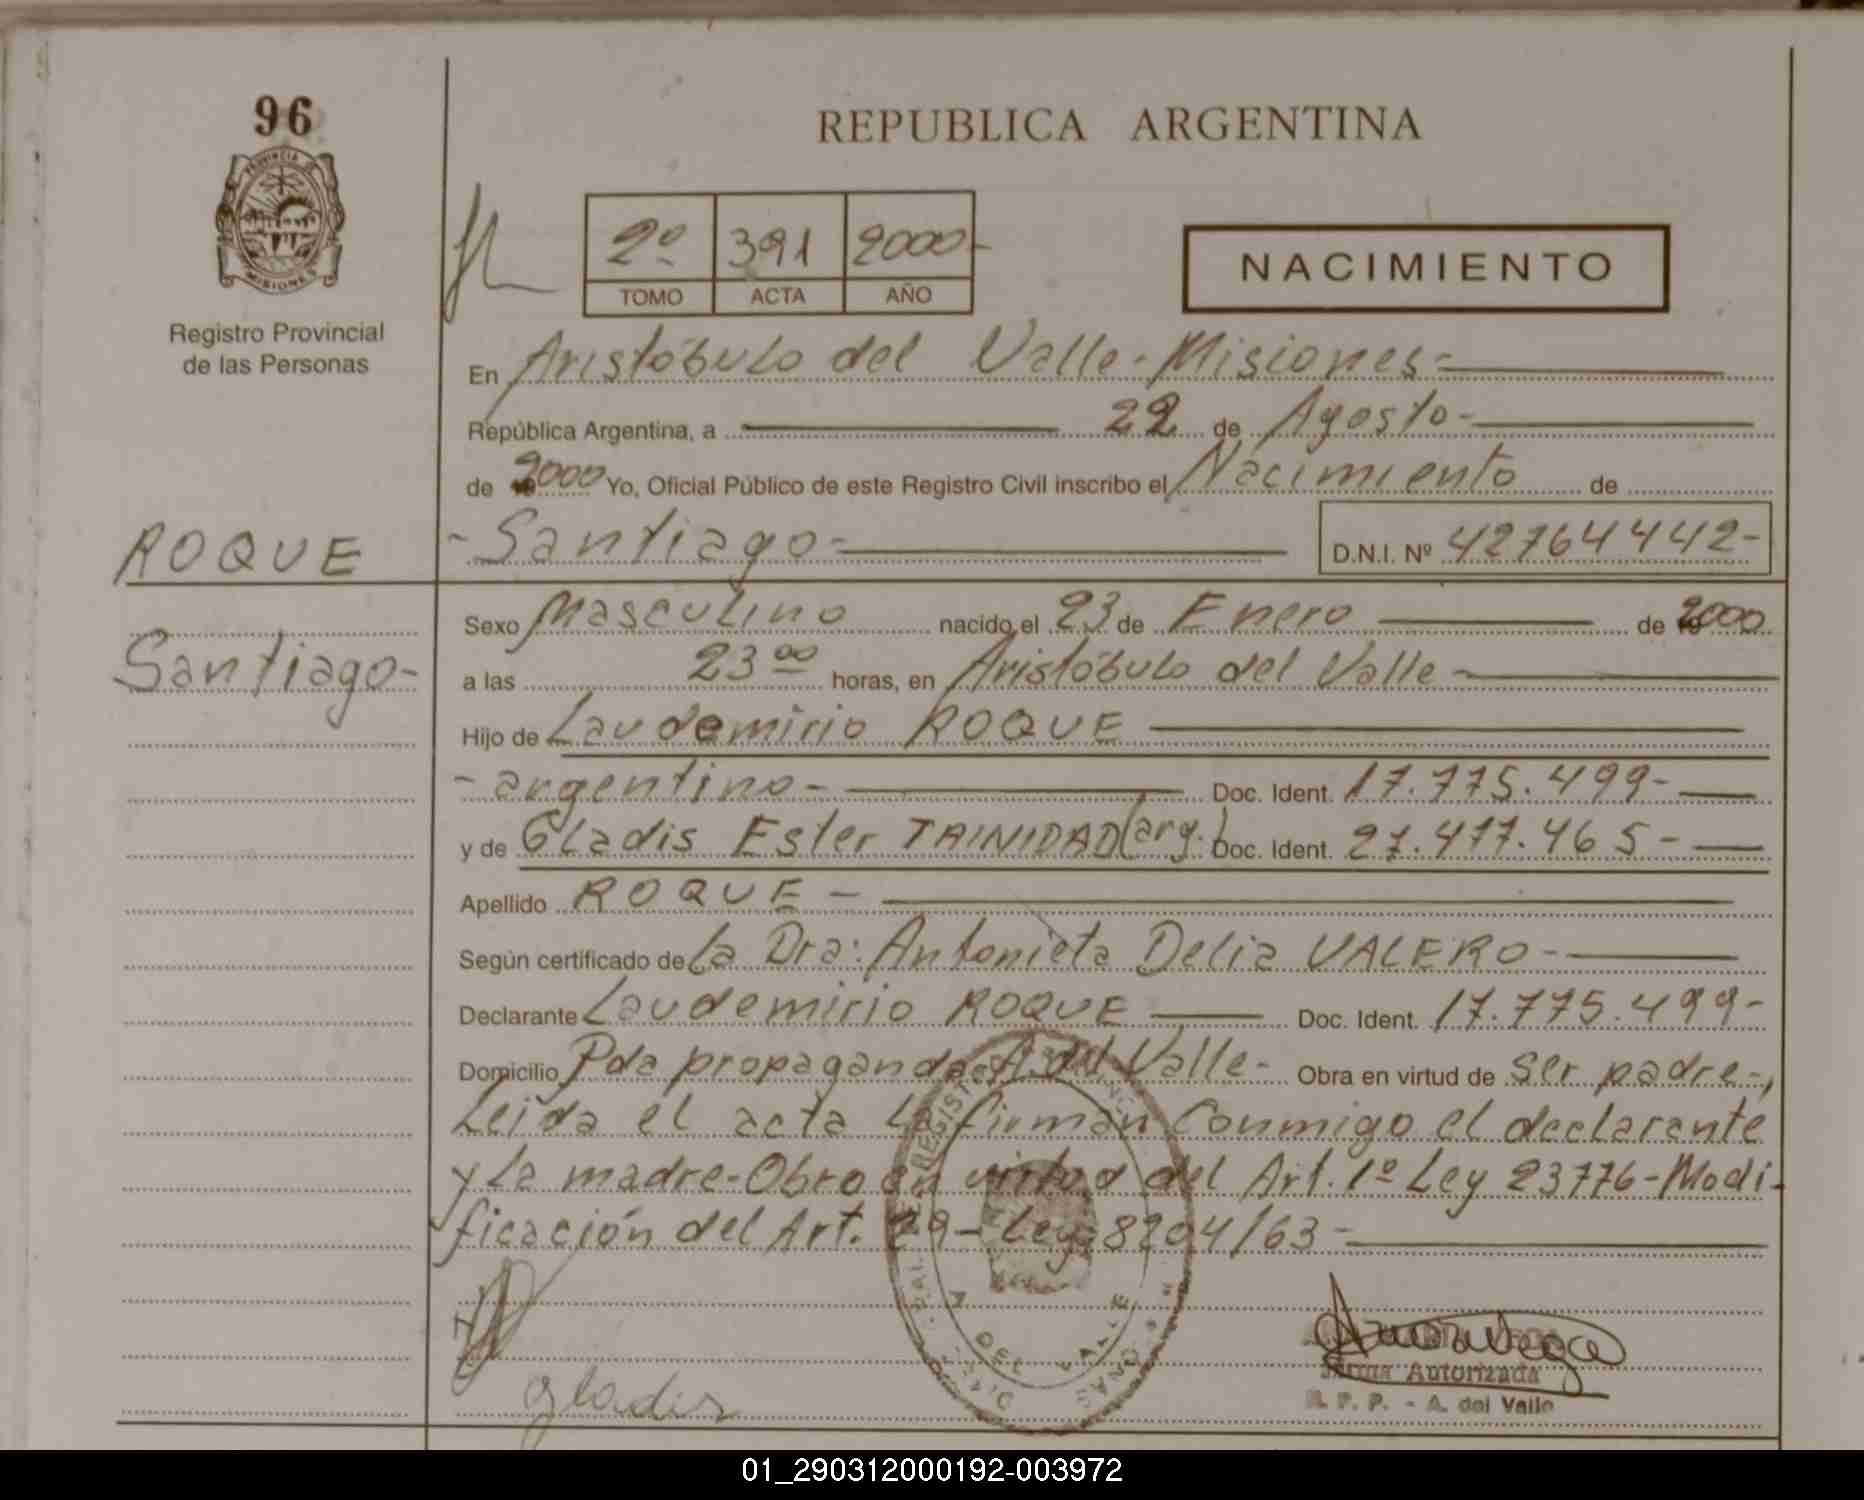 96
REPUBLICA ARGENTINA
PROVINCIA DE
MISIONES
2º 391 2000-
TOMO ACTA AÑO
NACIMIENTO
Registro Provincial
de las Personas
En Aristóbulo del Valle - Misiones -
República Argentina, a 22 de Agosto -
de 2000 Yo, Oficial Público de este Registro Civil inscribo el Nacimiento de
ROQUE - Santiago - D.N.I. Nº 42764442-
Sexo Masculino nacido el 23 de Enero de 2000
Santiago- a las 23 00 horas, en Aristóbulo del Valle -
Hijo de Laudemirio ROQUE
- argentino - Doc. Ident. 17.775.499-
y de Gladis Ester TRINIDAD (arg.) Doc. Ident. 27.477.465-
Apellido ROQUE -
Según certificado de La Dra: Antonieta Delia VALERO -
Declarante Laudemirio ROQUE Doc. Ident. 17.775.499-
Domicilio Pda propaganda A. del Valle - Obra en virtud de ser padre-,
Leída el acta la firman conmigo el declarante
y la madre-Obro en virtud del Art. 1º Ley 23776-Modi-
ficación del Art. 29- Ley 8204/63 -
gladis
A DEL VALLE
Firma Autorizada
R. P. P. - A. del Valle
01_290312000192-003972